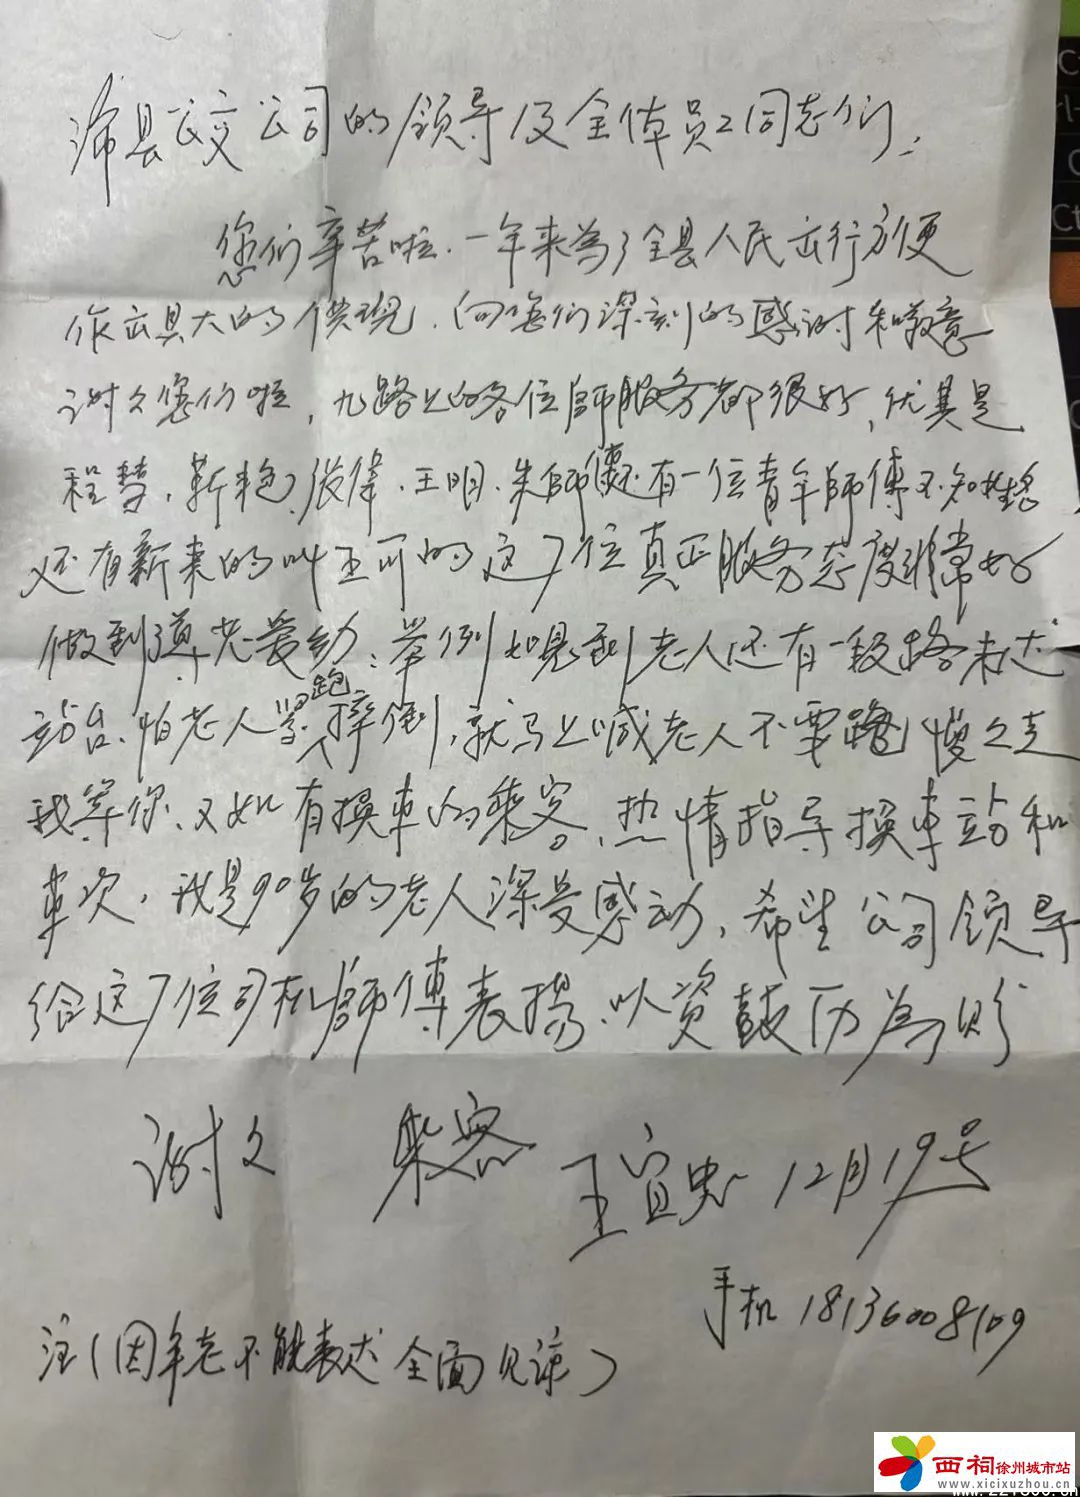 沛县公交公司的领导及全体员工同志们：
您们辛苦啦．一年来為了全县人民出行方便
作出具大的供现．向您们深刻的感谢和敬意
谢々您们啦，九路上的各位師服务都很好，优其是
程慧．靳艳、張偉．王明．朱師傅还有一位青年師傅不知姓名
还有新来的叫王可的这7位真正服务态度非常好
做到尊老爱幼：举例如見到老人还有一段路未达
站台、怕老人紧跑摔倒，就马上喊老人不要跑慢々走
我等你、又如有换車的乘客、热情指导换車站和
車次，我是90岁的老人深受感动，希望公司领导
给这7位司机師傅表揚、以資鼓历為盼
谢々 乘客 王宜忠 12月19号
手机 18136008109
注（因年老不能表达全面见谅）
Ct
西祠徐州城市站
www.xicixuzhou.cn